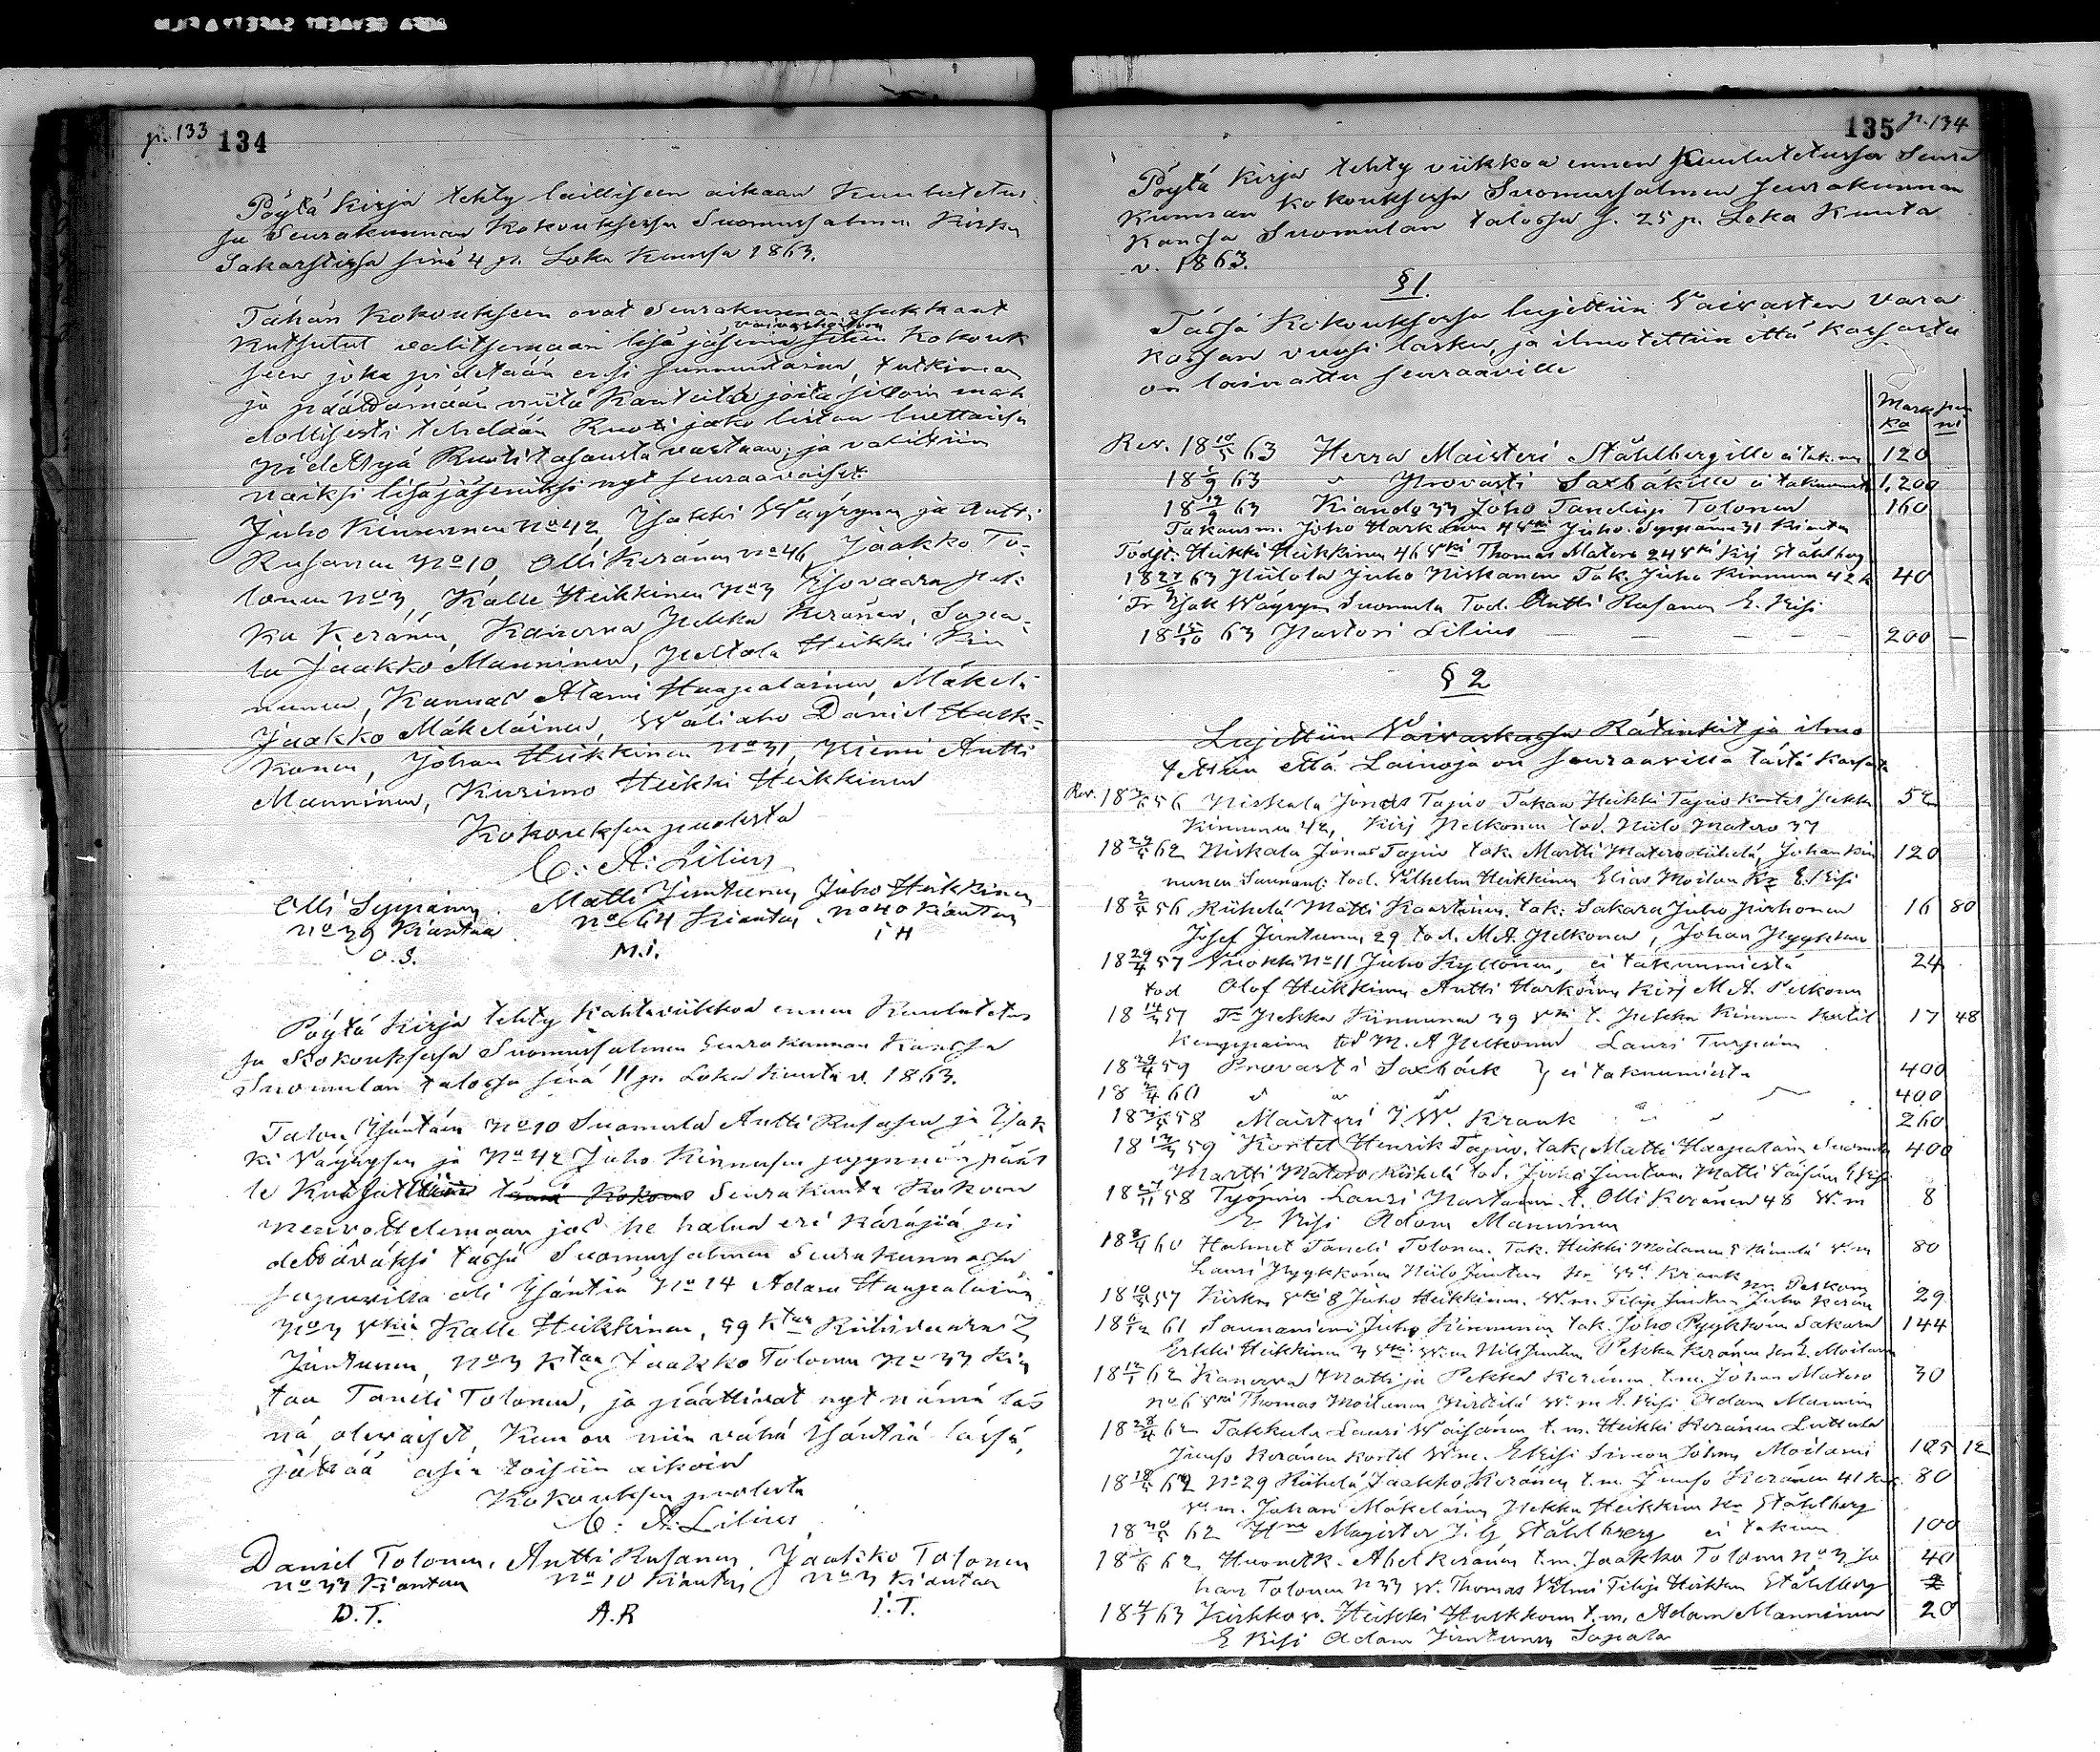 p. 133 134
Pöytä Kirja tehty lailliseen aikaan Kuulutetus-
sa Seurakunnan Kokouksessa Suomussalmen Kirkon
Sakarstissa sinä 4 p. Loka Kuussa 1863.
Tähän Kokoukseen ovat Seurakunnan asukkaat
vaivashoidon
Kutsutut valitsemaan lisä jäseniä siihen Kokouk
seen joka pidetään ensi sunnuntaina, tutkimaan
ja päättämään niitä Kanteita joita silloin mah
dollisesti tehdään Ruoti jako listan luettaissa
pidettyä Ruoti tasausta vastaan; ja valittiin
naiksi lisäjäseniksi nyt seuraavaiset:
Juho Kinnunen No 42, Isakki Wäyrynen ja Antti
Rusanen No 10 Olli Keränen No 46, Jaakko To-
lonen No 3, Kalle Heikkinen No 3 Isovaara Pek-
ka Keränen, Kanerva Pekka Keränen, Sapa-
la Jaakko Manninen, Peltola Heikki Kin
nunen, Kannas Atami Haapalainen, Mäkelä
Jaakko Mäkeläinen, Wäliaho Däniel Hulk-
konen, Johan Heikkinen No 31, Niemi Antti
Manninen, Kurimo Heikki Heikkinen
Kokouksen puolesta
C: A: Lilius
Olli Seppänen Matti Juntunen Juho Heikkinen
No 39 Kiantaa No 64 Kiantaa No 40 Kiantaa
O. S. M. I. I H
Pöytä Kirja tehty Kahta viikkoa ennen Kuulutetus
sa Kokouksessa Suomussalmen Seurakunnan Kanssa
Suomulan talossa sinä 11 p. Loka Kuuta v. 1863.
Talon Isäntäin No 10 Suomula Antti Rusasen ja Isak
ki Väyrysen ja No 42 Juho Kinnusen pyynnön päät
le Kutsuttiin tämä Kokous Seurakunta Kokoon
neuvottelemaan jos he halua eri Käräjiä pi
dettäväksi tässä Suomussalmen Seurakunnassa
sapuvilla oli Isäntiä No 14 Adam Haapalainen
No 3 Vkii Kalle Heikkinen, 59 Ktaa Riihivaara
Juntunen, No 3 Ktaa Jaakko Tolonen No 33 Kian
taa Taneli Tolonen, ja päättivät nyt nämä täs
nä olevaiset, Kun on niin vähä Isäntiä tässä,
jättää asia toisiin aikoin
Kokouksen puolesta
C: A: Lilius
Daniel Tolonen, Antti Rusanen, Jaakko Tolonen
No 33 Kiantaa No 10 Kiantaa No 3 Kiantaa
D. T. A. R I. T.
135 p. 134
Pöytä Kirja tehty viikkoa ennen Kuulutetussa Seura
Kunnan kokouksessa Suomussalmen seurakunnan
Kanssa Suomulan talossa s. 25 p. Loka Kuuta
v. 1863.
§ 1.
Tässä Kokouksessa lujettiin Vaivasten vara
kassan vuosi lasku, ja ilmotettiin että Kassasta
on lainattu seuraaville
Mark pen
ka ni
Rev. 18 10/5 63 Herra Maisteri Ståhlbergille ei tak. m 120
18 2/9 63 " Provasti Saxbäkille ei takuum 1,200
18 19/9 63 Kianda 33 Joho Tandinp Tolonen 160
Takaus m. Joho Hark Vki Juho Seppänen 31 Kianta
Todst. Heikki Heikkinen 46 Vki Thomas Matero 24 Vki Kirj Ståhlberg
18 63 Niilola Juho Niskanen Tak. Juho Kinnunen 42 40
Isak Wäyrynen Suomula Tod. Antti Rusanen E. Kisi
18 15/10 63 Pastori Lilius 200
§ 2
Lujettiin Vaivaskassa Rätinkit ja ilmo
tettiin että Lainoja on seuraavilla tästä Kassata
Rev. 18 56 Niskala Jonas Tapio Takaa Heikki Tapio Kortet Pekka 52
Kinnunen 42, Kirj Pelkonen tod. Niilo Matero 37
18 62 Niskala Jonas Tapio tak. Martti Matero Riihelä, Johan Kin 120
nunen tod. Vilhelm Heikkinen Elias Moilan E. Kisi
18 56 Riihelä Matti Kaartinen tak: Sakara Juho Kirhonen 16 80
Josef Juntunen 29 tod. M. A. Pelkonen, Johan Pyykkönen
18 29/4 57 Vuokki No 11 Juho Kyllönen, ei takuumiestä 24
tod Olof Heikkinen Antti Harkönen Kirj M A. Pelkonen
18 57 Pekka Kinnunen 39 Vki t. Pekka Kinnunen 17 48
Kemppainen tod M. A Pelkonen Lauri Turpiainen
18 29/4 59 Provasti Saxbäck } ei takuumiestä 400
18 60 " " 400
18 58 Maisteri J. W. Krank " " 260
18 59 Kortet Henrik Tapio, tak, Matti Haapalain Suomula 400
Martti Matero Riihelä tod. Juntunen Matti Väisänen E Kisi
18 58 Työmies Lauri t. Olli Keränen 46 W. m 8
E Kisi Adam Manninen
18 60 Halmet Taneli Tolonen. Tak. Heikki Moilanen 80
Lauri Pyykkönen Niilo Juntunen Krank
18 57 Kirkn Vki 8 Juho Heikkinen. W. m. Filip Juntun Juho Keränen 29
18 61 Saunaniemi Juho Kinnunen tak. Joho Pyykkönen Sakara 144
Erkki Heikkinen 3 Vki Pekka Keränen E. Moilanen
18 62 Kanerva Matti ja Pekka Keränen t. m. Johan Matero 30
No 6 Vki Thomas Moilanen W. m E. Kisi Adam Mannin
18 28/4 62 Takkula Lauri Väisänen t. m. Heikki Keränen Luttula
Junso Keränen Kortet W m. E Kisi Simon Johan Moilanen 125 12
18 62 No 29 Riihelä Jaakko Keränen t. m. Junso Keränen 41 80
W m. Johan Mäkeläinen Pekka Heikkinen Ståhlberg
18 62 Magister J. G Ståhlberg ei takuu 100
18 62 Huonetk. Abel Keränen t. m. Jaakko Tolonen No 3 Jo 40
han Tolonen N 33 W. Thomas Filip Heikkinen Ståhlberg
18 63 Kirkko v. Heikki Hulkkonen t. m. Adam Manninen 20
E Kisi Adam Juntunen Sapala